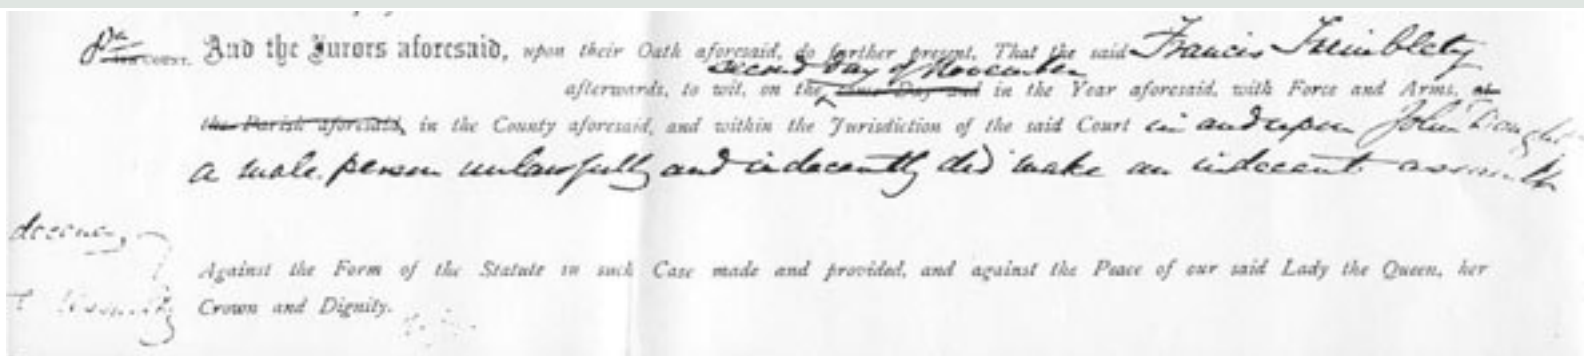 COUNT. And the Jurors aforesaid, upon their Oath aforesaid, do further present, That the said Francis Trimblety
second day of November
afterwards, to wit, on the same Day and in the Year aforesaid, with Force and Arms, at
the Parish aforesaid, in the County aforesaid, and within the Jurisdiction of the said Court in and upon John
a male person unlawfully and indecently did make an indecent assault
Against the Form of the Statute in such Case made and provided, and against the Peace of our said Lady the Queen, her
Crown and Dignity.